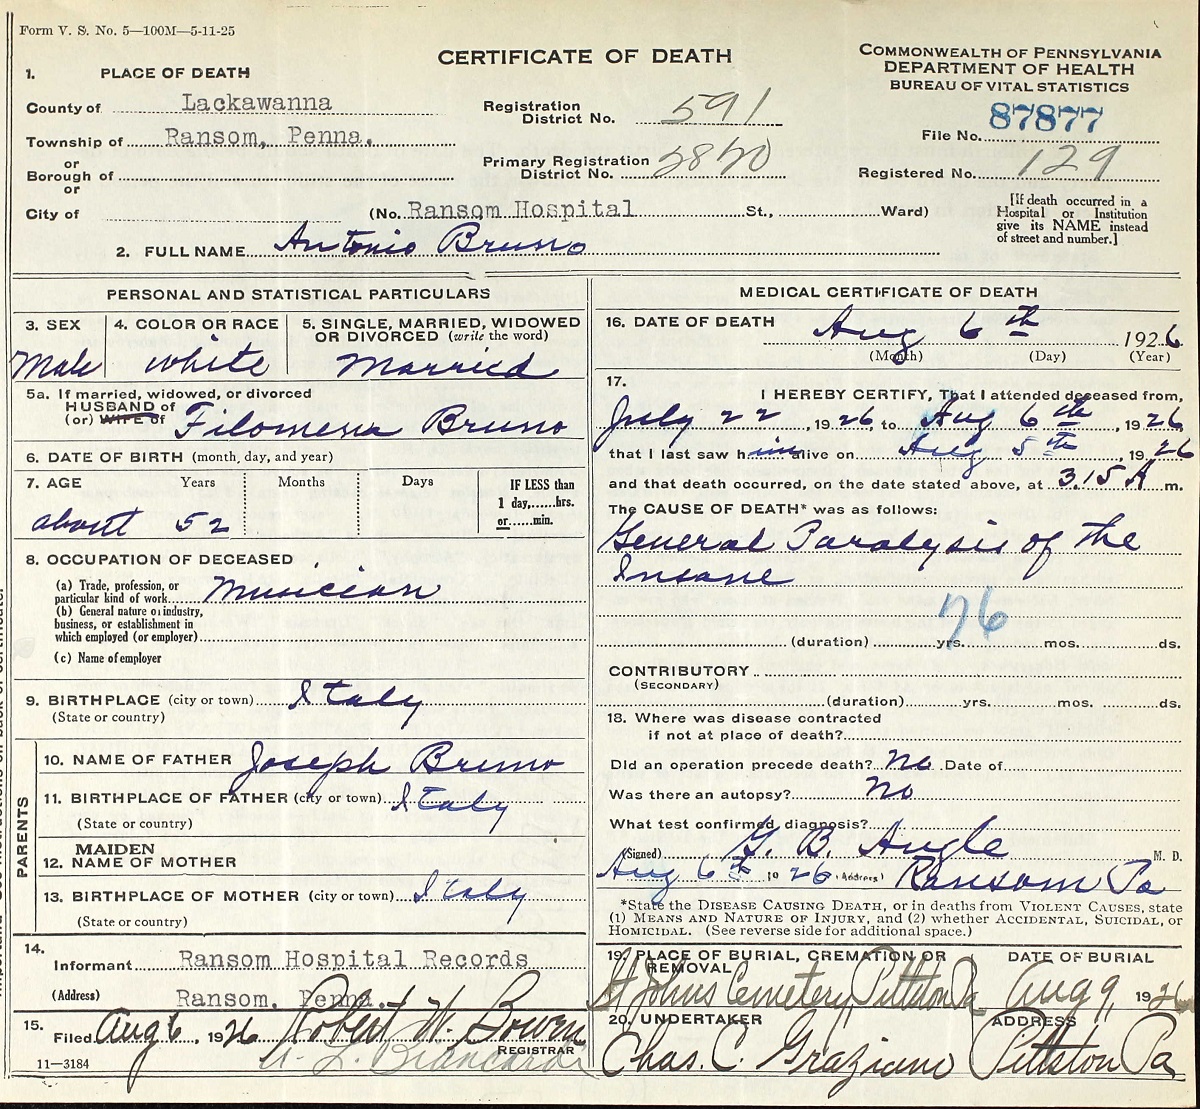 Form V. S. No. 5—100M—5-11-25
CERTIFICATE OF DEATH
COMMONWEALTH OF PENNSYLVANIA
DEPARTMENT OF HEALTH
BUREAU OF VITAL STATISTICS
1. PLACE OF DEATH
County of Lackawanna
Township of Ransom, Penna.
or
Borough of
or
City of
Registration District No. 591
Primary Registration District No.
File No. 87877
Registered No. 129
(No. Ransom Hospital St., Ward)
[If death occurred in a Hospital or Institution give its NAME instead of street and number.]
2. FULL NAME Antonio Bruno
PERSONAL AND STATISTICAL PARTICULARS
3. SEX Male
4. COLOR OR RACE white
5. SINGLE, MARRIED, WIDOWED OR DIVORCED (write the word) Married
5a. If married, widowed, or divorced
HUSBAND of
(or) WIFE of Filomena Bruno
6. DATE OF BIRTH (month, day, and year)
7. AGE Years Months Days
about 52
IF LESS than
1 day,......hrs.
or......min.
8. OCCUPATION OF DECEASED
(a) Trade, profession, or particular kind of work Musician
(b) General nature of industry, business, or establishment in which employed (or employer)
(c) Name of employer
9. BIRTHPLACE (city or town) Italy
(State or country)
PARENTS
10. NAME OF FATHER Joseph Bruno
11. BIRTHPLACE OF FATHER (city or town) Italy
(State or country)
12. MAIDEN NAME OF MOTHER
13. BIRTHPLACE OF MOTHER (city or town) Italy
(State or country)
14.
Informant Ransom Hospital Records
(Address) Ransom, Penna.
15.
Filed Aug 6, 1926 Robert W. Bowen
REGISTRAR
11—3184
MEDICAL CERTIFICATE OF DEATH
16. DATE OF DEATH Aug 6th 1926
(Month) (Day) (Year)
17.
I HEREBY CERTIFY, That I attended deceased from,
July 22, 1926, to Aug 6th, 1926,
that I last saw him alive on Aug 5th, 1926
and that death occurred, on the date stated above, at 3.15 A m.
The CAUSE OF DEATH* was as follows:
General Paralysis of the
Insane
76
(duration) yrs. mos. ds.
CONTRIBUTORY
(SECONDARY)
(duration) yrs. mos. ds.
18. Where was disease contracted
if not at place of death?
Did an operation precede death? No Date of
Was there an autopsy? No
What test confirmed diagnosis?
(Signed) G. B. Angle M. D.
Aug 6th 1926 (Address) Ransom Pa
*State the DISEASE CAUSING DEATH, or in deaths from VIOLENT CAUSES, state
(1) MEANS AND NATURE OF INJURY, and (2) whether ACCIDENTAL, SUICIDAL, or
HOMICIDAL. (See reverse side for additional space.)
19. PLACE OF BURIAL, CREMATION OR REMOVAL
St Johns Cemetery, Pittston Pa
DATE OF BURIAL
Aug 9, 1926
20. UNDERTAKER
Chas. C. Graziano
ADDRESS
Pittston Pa